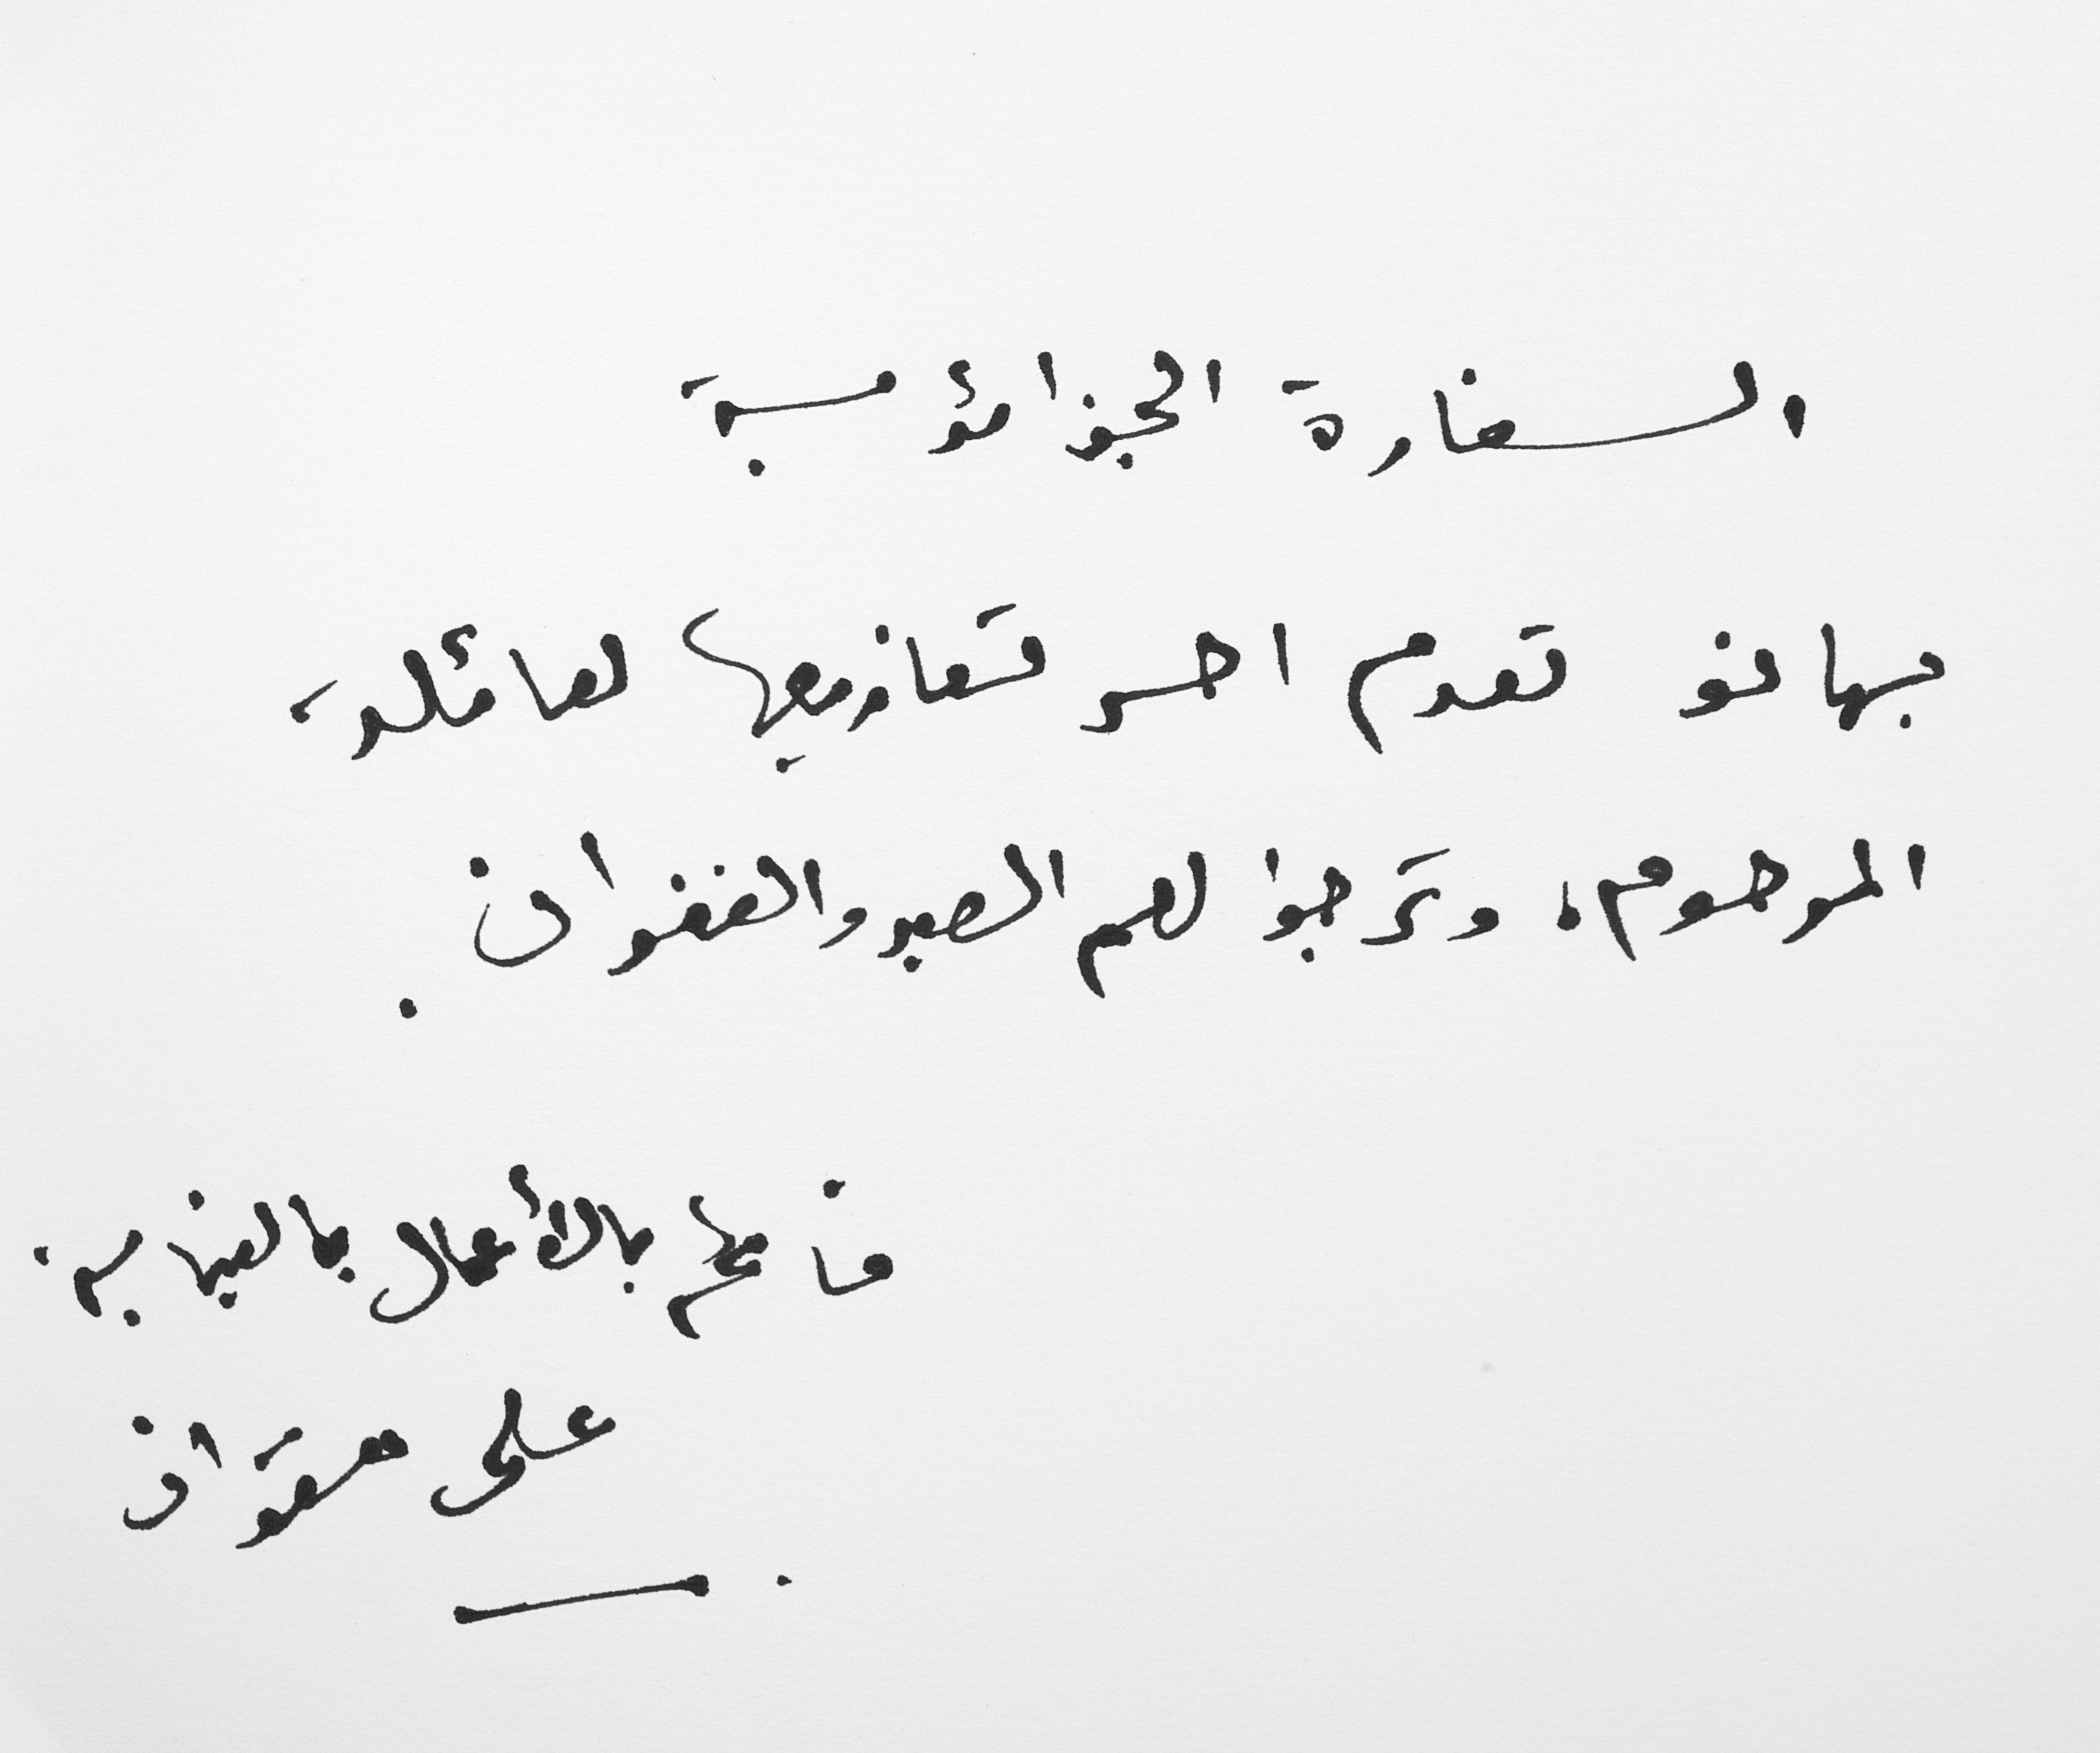 السفارة الجزائرية
بهانو تقدم احر تعازيها لعائلة
المرحوم، وترجوا لهم الصبر والغفران.
قائم بالأعمال بالنيابة.
على